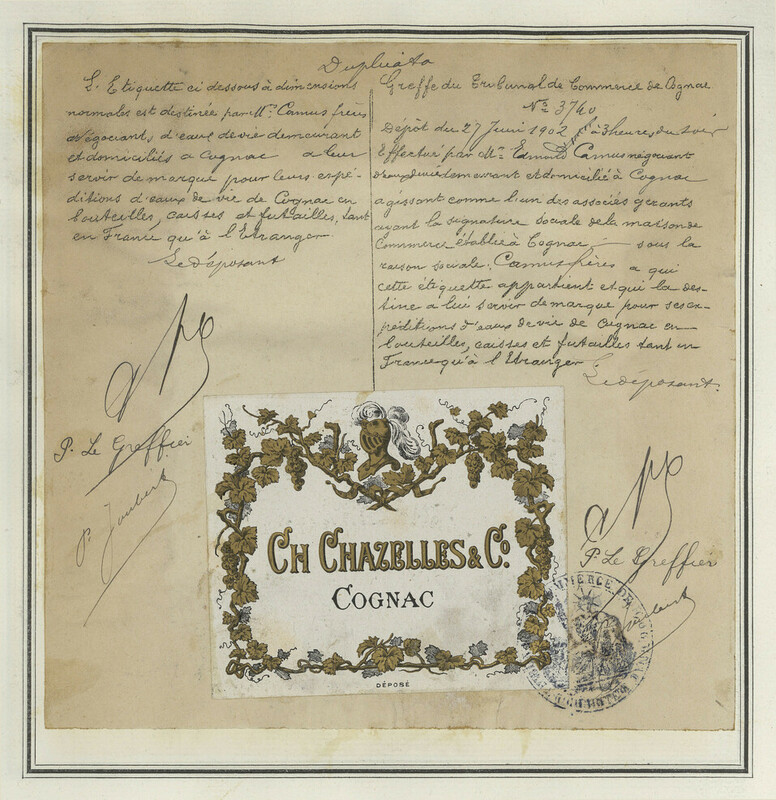 Duplicata
L'Etiquette ci dessous à dimensions
normales est destinée par Mrs. Camus frères
négociants d'eaux de vie demeurant
et domiciliés à Cognac à leur
servir de marque pour leurs expé-
ditions d'eaux de vie de Cognac en
bouteilles, caisses et futailles, tant
en France qu'à l'Etranger
Le déposant
P. Le Greffier
P. Joubert
Greffe du Tribunal de Commerce de Cognac
No 3740
Dépôt du 27 Juin 1902 à 3 heures du soir
Effectué par Mr. Edmond Camus négociant
d'eaux de vie demeurant et domicilié à Cognac
agissant comme l'un des associés gérants
ayant la signature sociale de la maison de
Commerce établie à Cognac sous la
raison sociale: Camus frères a qui
cette étiquette appartient et qui la des-
tine a lui servir de marque pour ses ex-
péditions d'eaux de vie de Cognac en
bouteilles, caisses et futailles tant en
France qu'à l'Etranger
Le déposant.
P. Le Greffier
Joubert
CH CHAZELLES & Co.
COGNAC
DÉPOSÉ
COMMERCE DE COGNAC